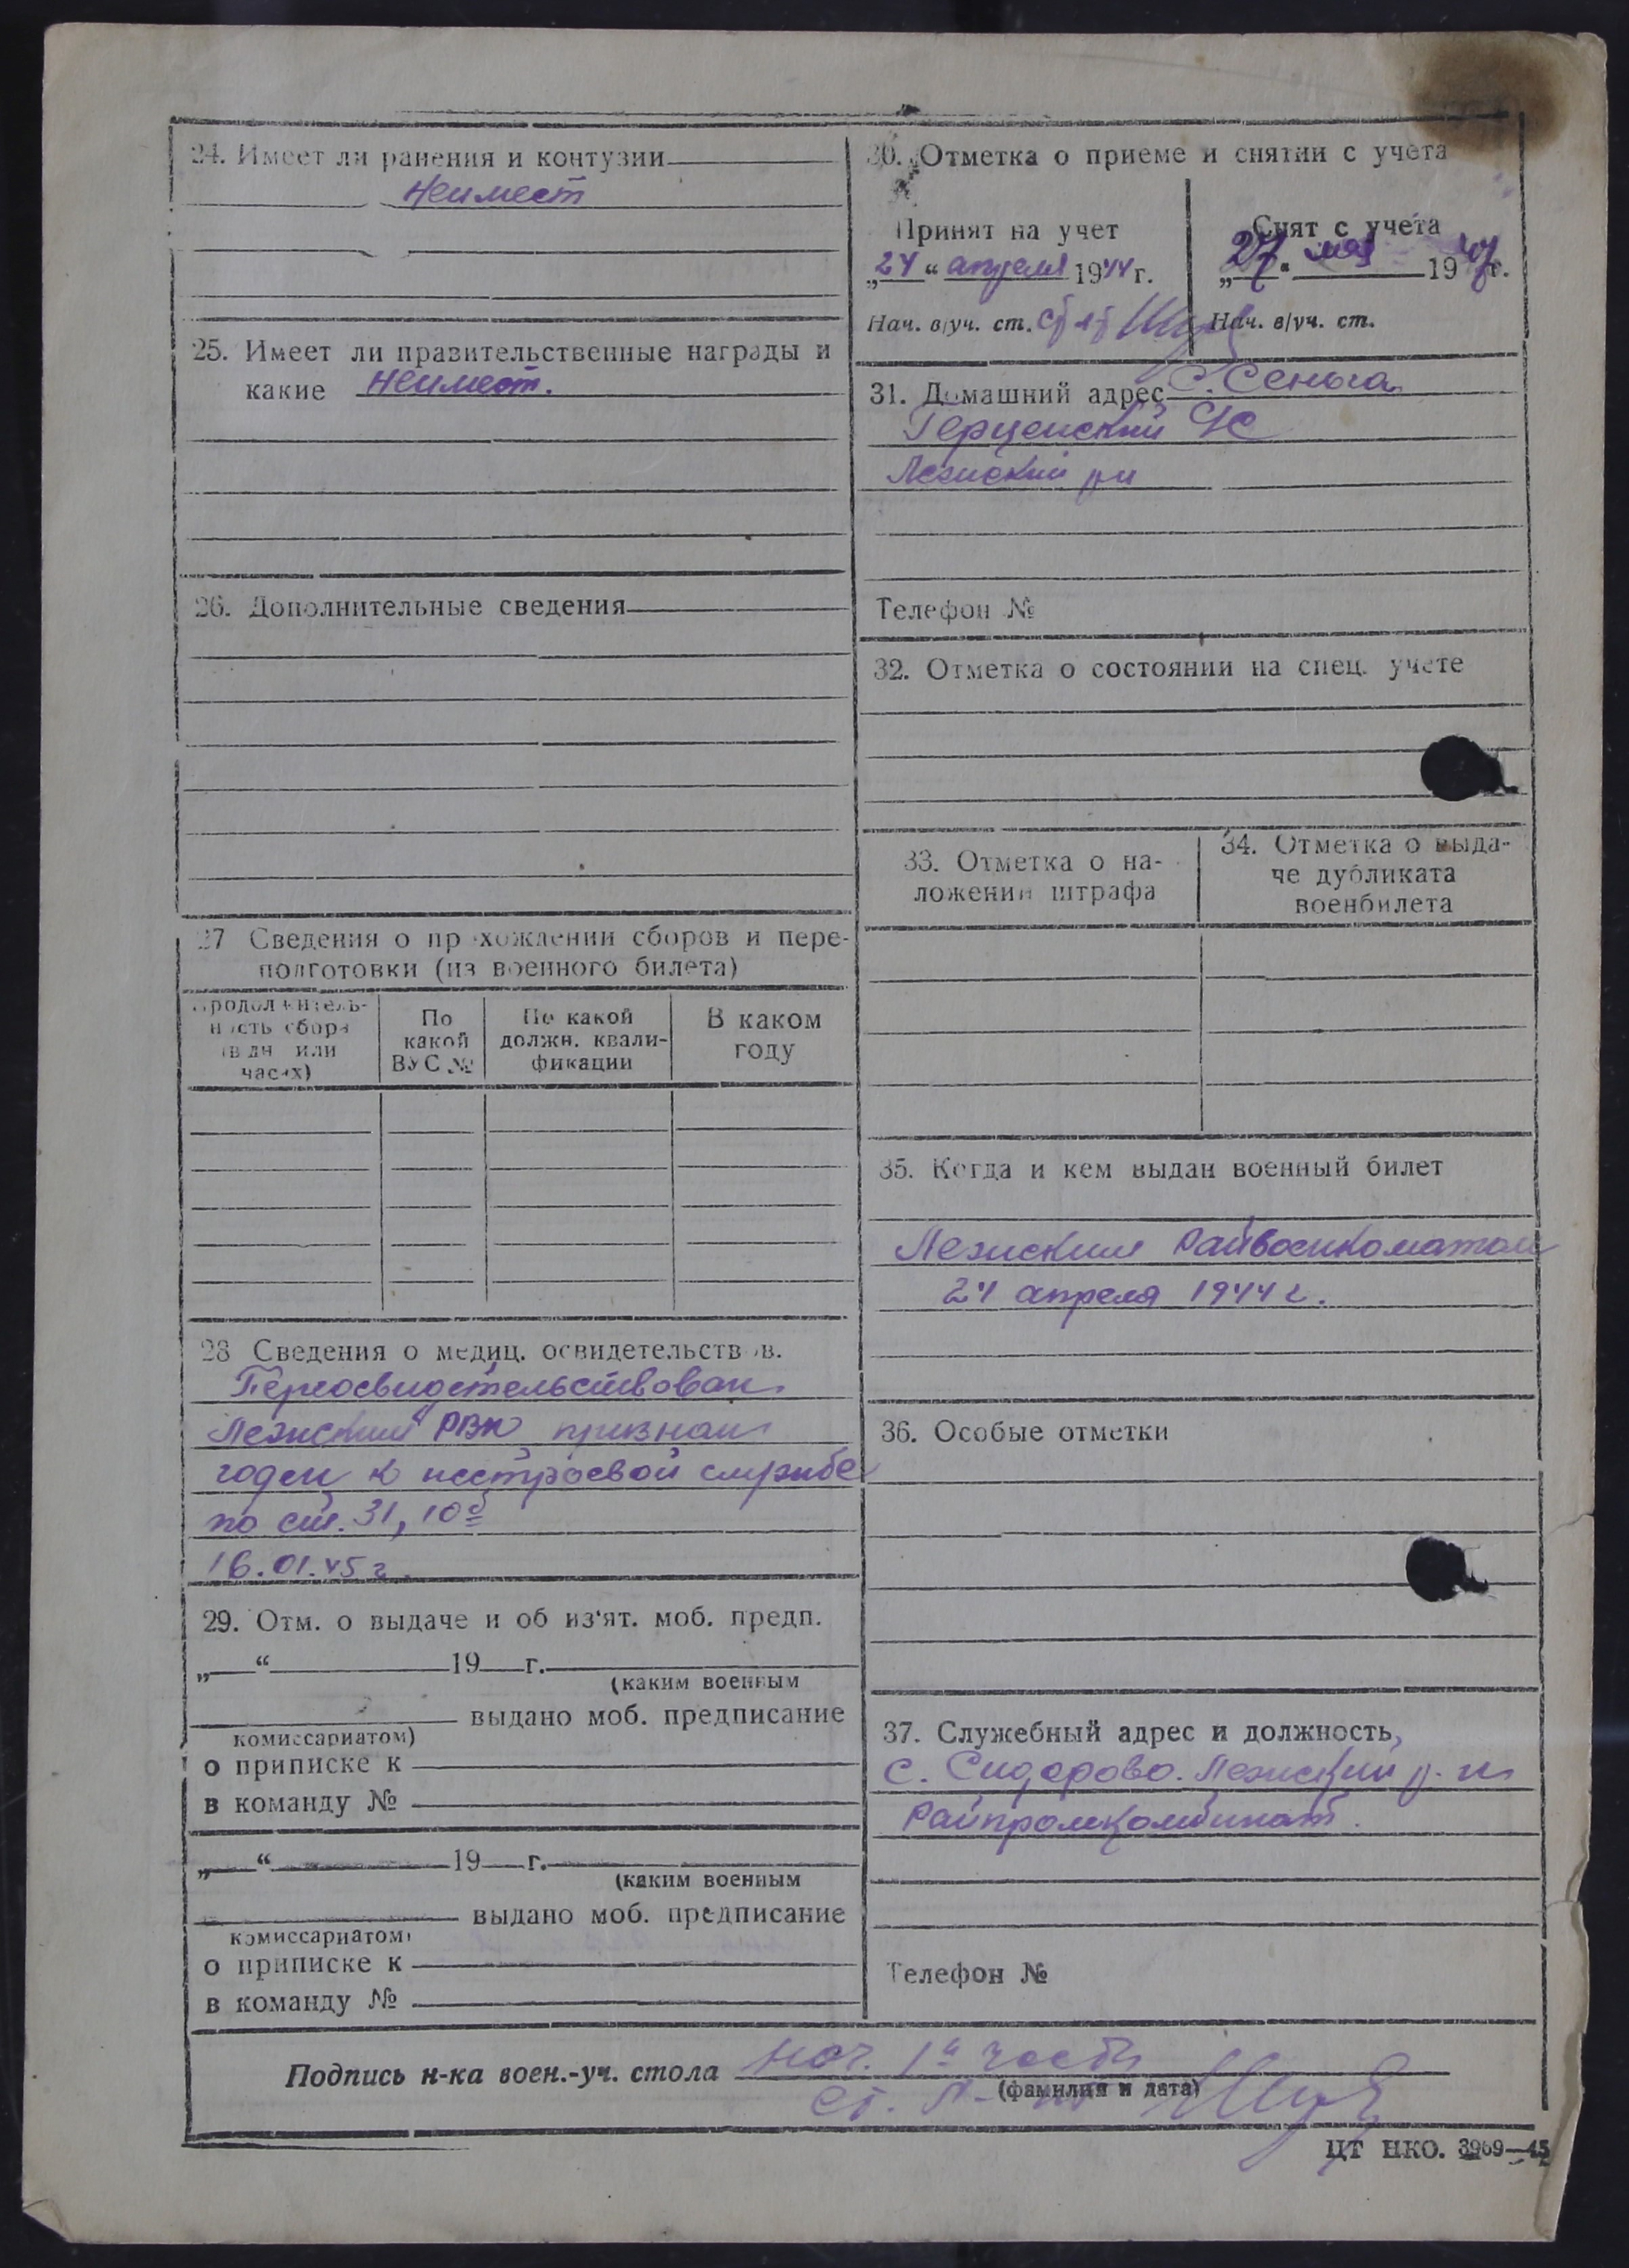 24. Имеет ли ранения и контузии
Неимеет
25. Имеет ли правительственные награды и
какие Неимеет.
26. Дополнительные сведения
27 Сведения о пр хождении сборов и пере-
подготовки (из военного билета)
Продолжитель-
ность сбора
(в дн или
часах)
По
какой
ВУС №
По какой
должн. квали-
фикации
В каком
году
28 Сведения о медиц. освидетельств в.
Переосвидетельствован
Лежский РВК признан
годен к нестроевой службе
по ст. 31, 10б
16.01.45 г.
29. Отм. о выдаче и об из'ят. моб. предп.
„ “ 19 г.
(каким военным
выдано моб. предписание
комиссариатом)
о приписке к
в команду №
„ “ 19 г.
(каким военным
выдано моб. предписание
комиссариатом)
о приписке к
в команду №
30. Отметка о приеме и снятии с учета
Принят на учет
„24“ апреля 1944 г.
Нач. в/уч. ст.
Снят с учета
„27“ мая 1947 г.
Нач. в/уч. ст.
31. Домашний адрес с. Сеньга
Герценский с/с
Лежский рн
Телефон №
32. Отметка о состоянии на спец. учете
33. Отметка о на-
ложении штрафа
34. Отметка о выда-
че дубликата
военбилета
35. Когда и кем выдан военный билет
Лежским Райвоенкоматом
24 апреля 1944 г.
36. Особые отметки
37. Служебный адрес и должность,
с. Сидорово. Лежский р-н
Райпромкомбинат.
Телефон №
Подпись н-ка воен.-уч. стола нач. 1й части
(фамилия и дата)
ст. л-нт
ЦТ НКО. 3969—45